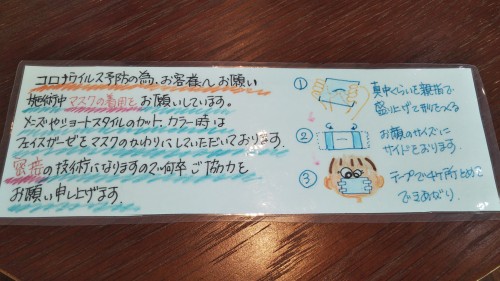 コロナウイルス予防の為、お客様へお願い
施術中マスクの着用をお願いしています。
メンズやショートスタイルのカット、カラー時は
フェイスガーゼをマスクのかわりにしていただいております。
密接の技術になりますので何卒ご協力を
お願い申し上げます
① 真中くらいを親指で
盛り上げて形をつくる
② お顔のサイズに
サイドをおります
③ テープで4ヶ所とめて
できあがり